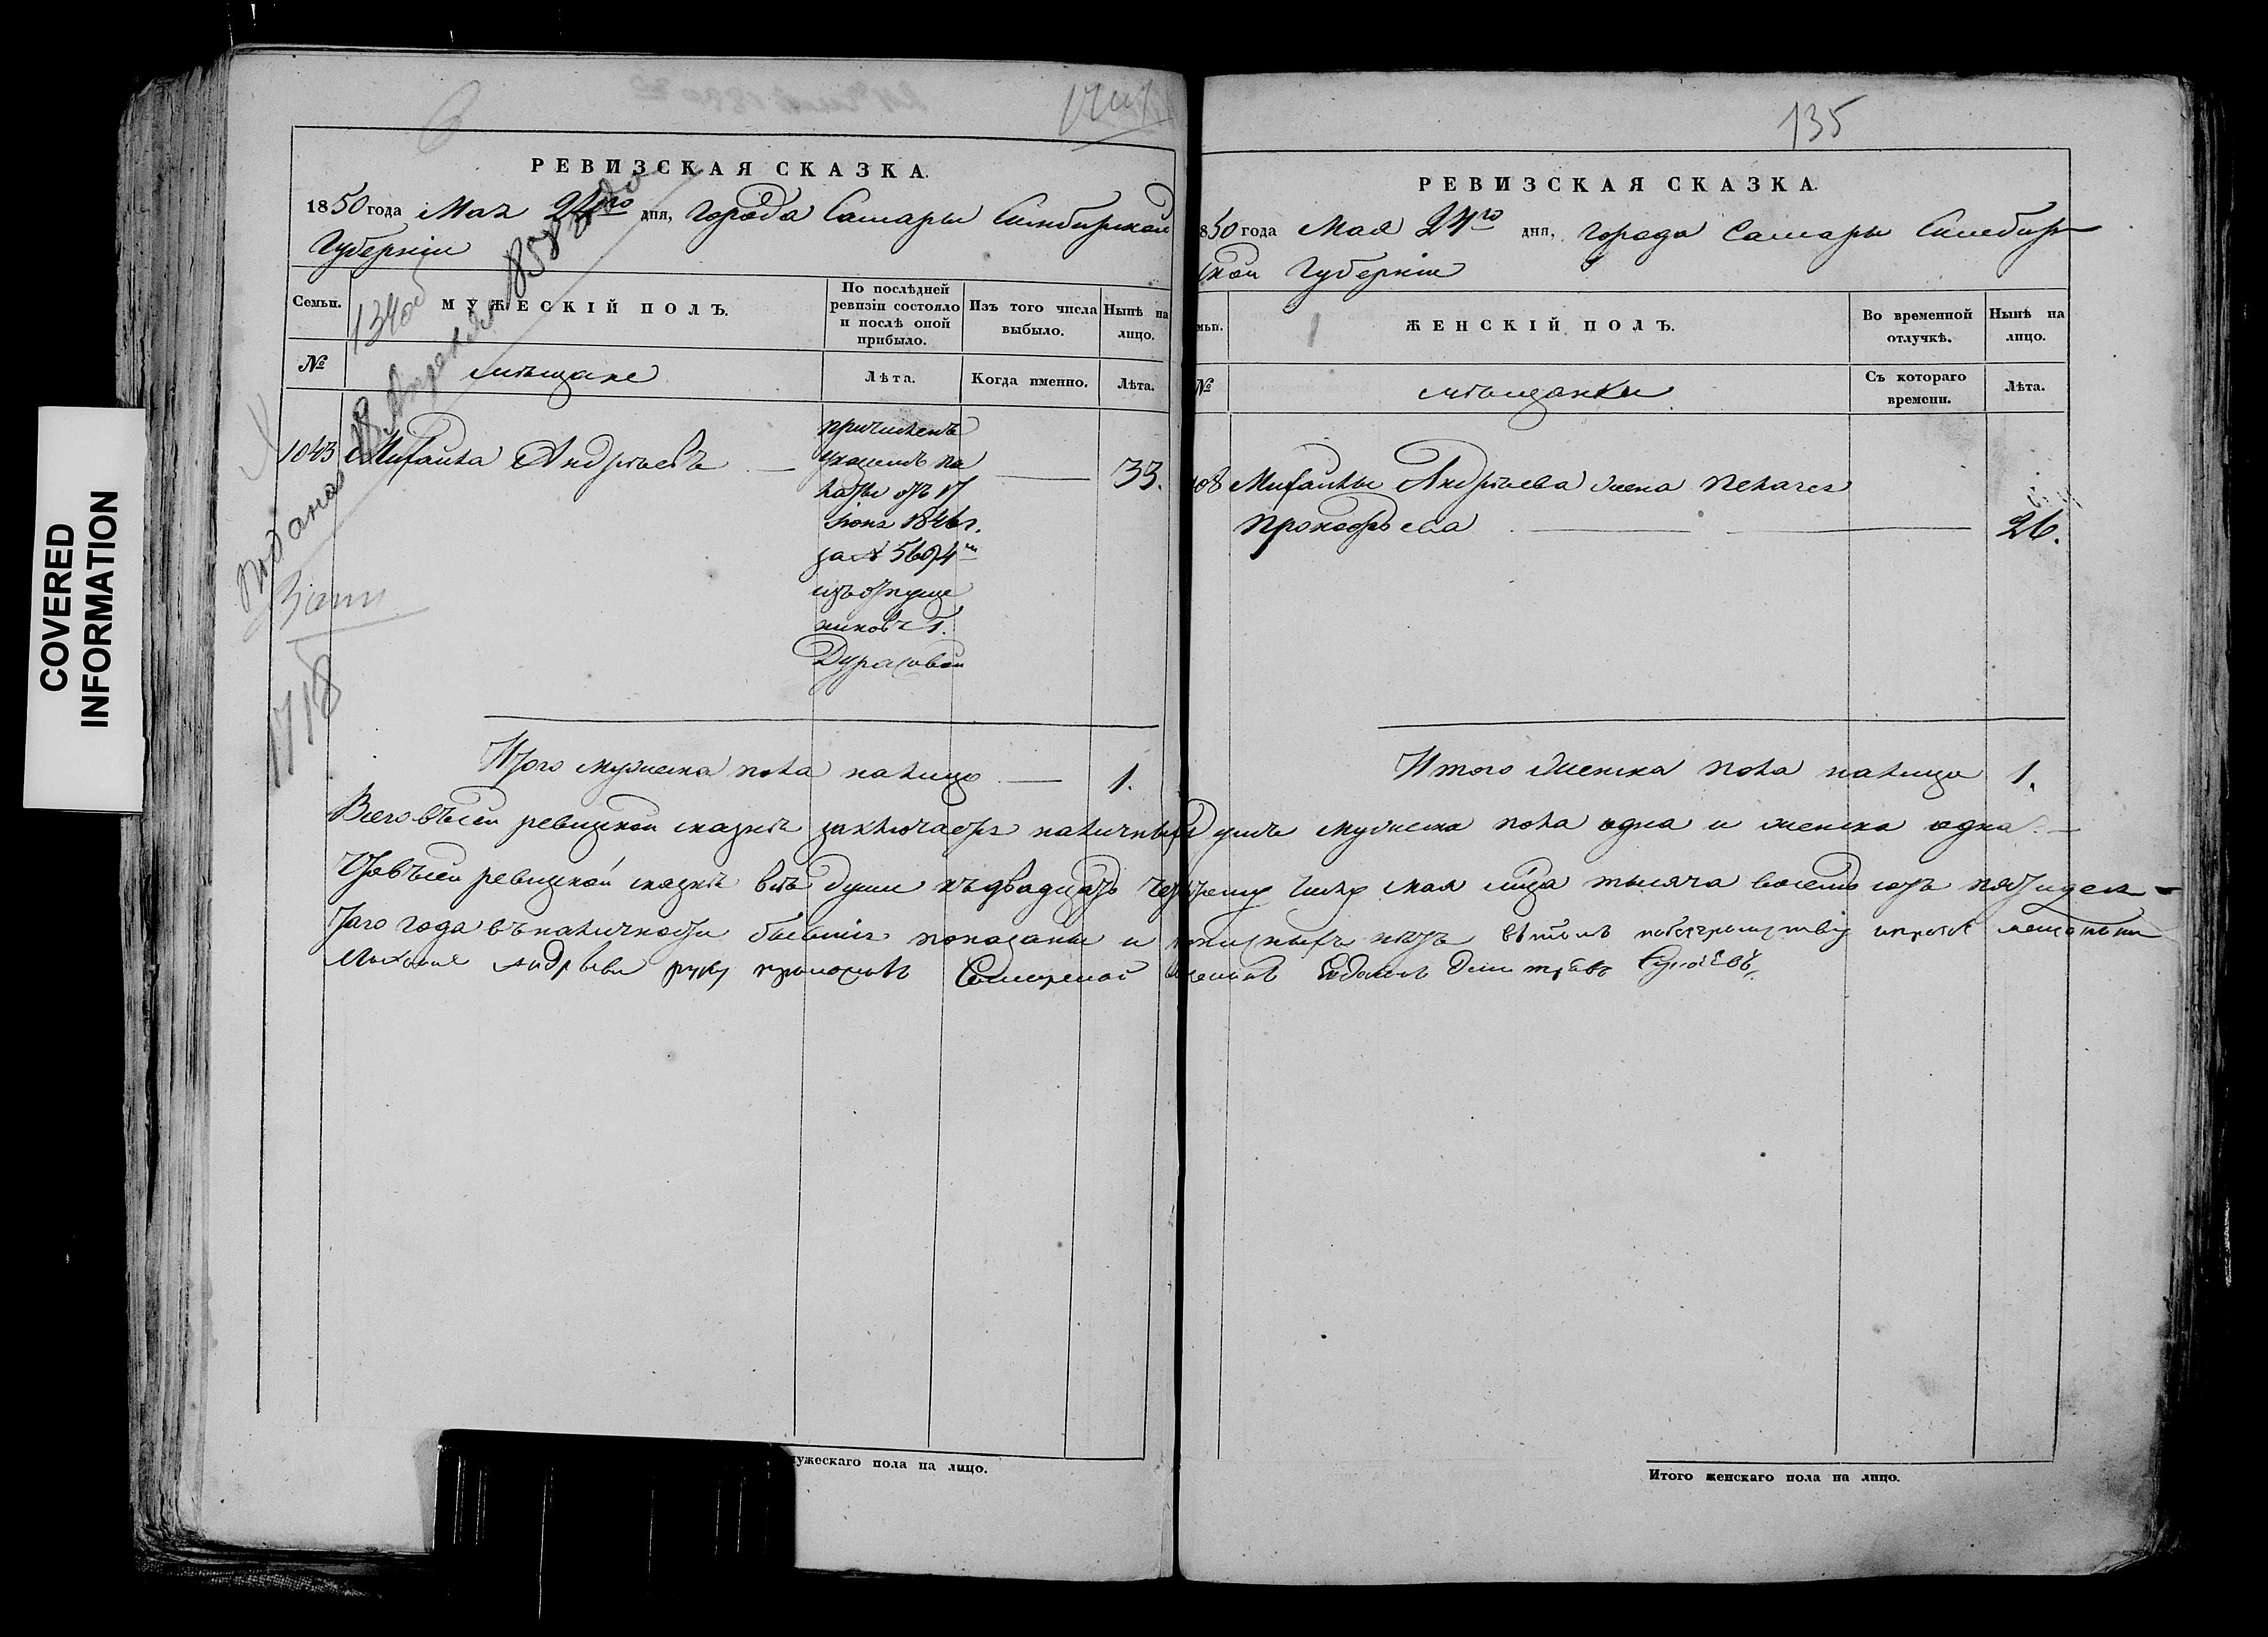 COVERED
INFORMATION
РЕВИЗСКАЯ СКАЗКА.
1850 года Мая 24го дня, города Самары Симбирской
Губерніи
Семьи.
МУЖЕСКІЙ ПОЛЪ.
По послѣдней
ревизіи состояло
и послѣ оной
прибыло.
Изъ того числа
выбыло.
Нынѣ на
лицо.
№
мѣщане
Лѣта.
Когда именно.
Лѣта.
1043 Михайла Андреевъ — 33.
причисленъ
указомъ па
латы отъ 17
1846 г.
за № 5694м
изъ отпуще
никовъ Г.
Дурасовой
Итого мужеска пола налицо — 1.
Подана 18 Апреля 1858 года
1718
135
РЕВИЗСКАЯ СКАЗКА.
850 года Мая 24го дня, города Самары Симбир
ской Губерніи
мьи.
ЖЕНСКІЙ ПОЛЪ.
Во временной
отлучкѣ.
Нынѣ на
лицо.
№
мѣщанки
Съ котораго
времени.
Лѣта.
Михайлы Андреева жена Пелагея
Прокофьева — 26.
Итого женска пола налицо 1.
Всего въ сей ревизкой сказкѣ заключается наличныхъ душъ мужеска пола одна и женска одна. —
Что въ сей ревизкой сказкѣ всѣ души къ двадцать четвертому числу мая мца тысяча восемь сотъ пятидеся-
таго года въ наличности бывшіе показаны и прописныхъ нѣтъ въ томъ
Андреева руку приложилъ Самарской
Итого мужескаго пола на лицо.
Итого женскаго пола на лицо.